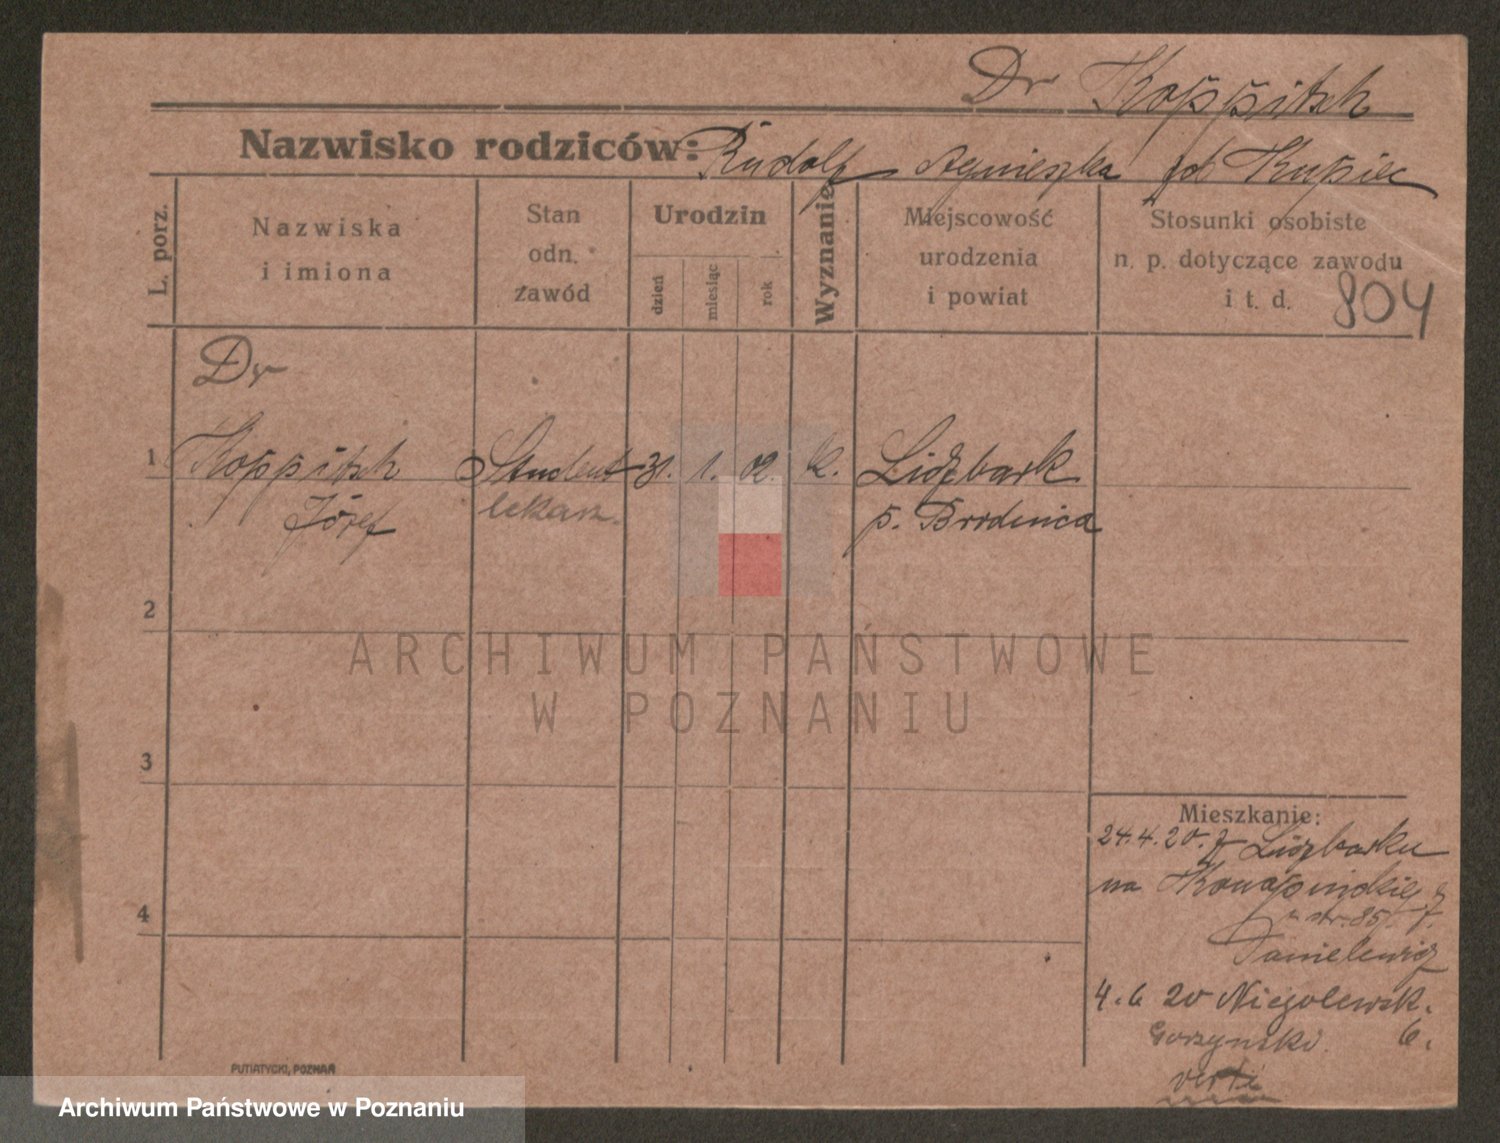 Dr Koppitsch
Nazwisko rodziców: Rudolf Agnieszka Kupiec
L. porz.
Nazwiska
i imiona
Stan
odn.
zawód
Urodzin
dzień
miesiąc
rok
Wyznanie
Miejscowość
urodzenia
i powiat
Stosunki osobiste
n. p. dotyczące zawodu
i t. d. 804
Dr
1 Koppitsch Student 31. 1. 02. k. Lidzbark
Józef lekarz. p. Brodnica
2
3
4
Mieszkanie:
24.4.20. z Lidzbarku
na
str. 85
Danielewicz
4.6 20 Niegolewsk.
Gorzynski 6.
verte
PUTIATYCKI, POZNAŃ
ARCHIWUM PAŃSTWOWE
W POZNANIU
Archiwum Państwowe w Poznaniu